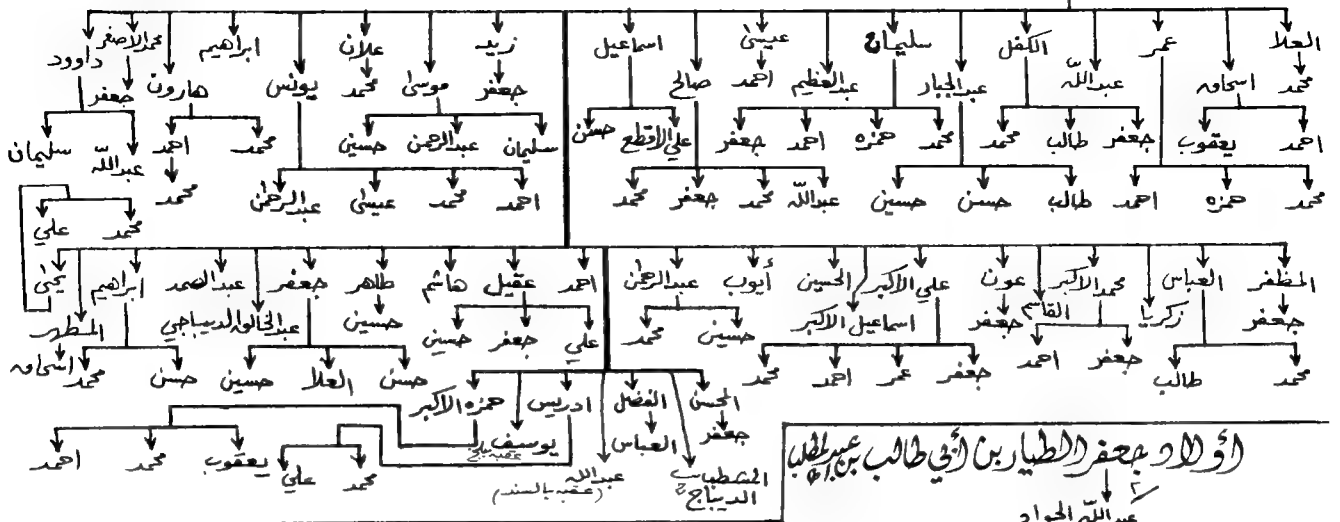 العلا عمر الكفل سليمان عيسى اسماعيل زيد علان ابراهيم محمد الأصغر داوود
محمد اسحاق عبد الله عبد الجبار عبد العظيم احمد صالح جعفر موسى محمد يونس هارون جعفر
احمد يعقوب جعفر طالب محمد محمد همزه احمد جعفر علي الأقطع حسن سليمان عبد الرحمن حسين محمد احمد عبد الله سليمان
محمد همزه احمد طالب حسن حسين عبد الله محمد جعفر محمد احمد محمد عيسى عبد الرحمن محمد
محمد علي
المظفر العباس زكريا محمد الأكبر القاسم عون علي الأكبر الحسين أيوب عبد الرحمن احمد عقيل هاشم طاهر جعفر عبد الصمد ابراهيم يحيى
جعفر جعفر اسماعيل الأكبر حسين عبد الخالق الديباجي المطهر
جعفر احمد حسين محمد علي جعفر حسين
محمد طالب جعفر عمر احمد محمد حسن العلا حسين حسن محمد اسحاق
المحسن الفضل ادريس همزه الأكبر
جعفر العباس يوسف
محمد علي يعقوب محمد احمد
عبد الله
(عقبه بالسند)
الديباج
أولاد جعفر الطيار بن أبي طالب بن عبد المطلب
عبد الله الجواد